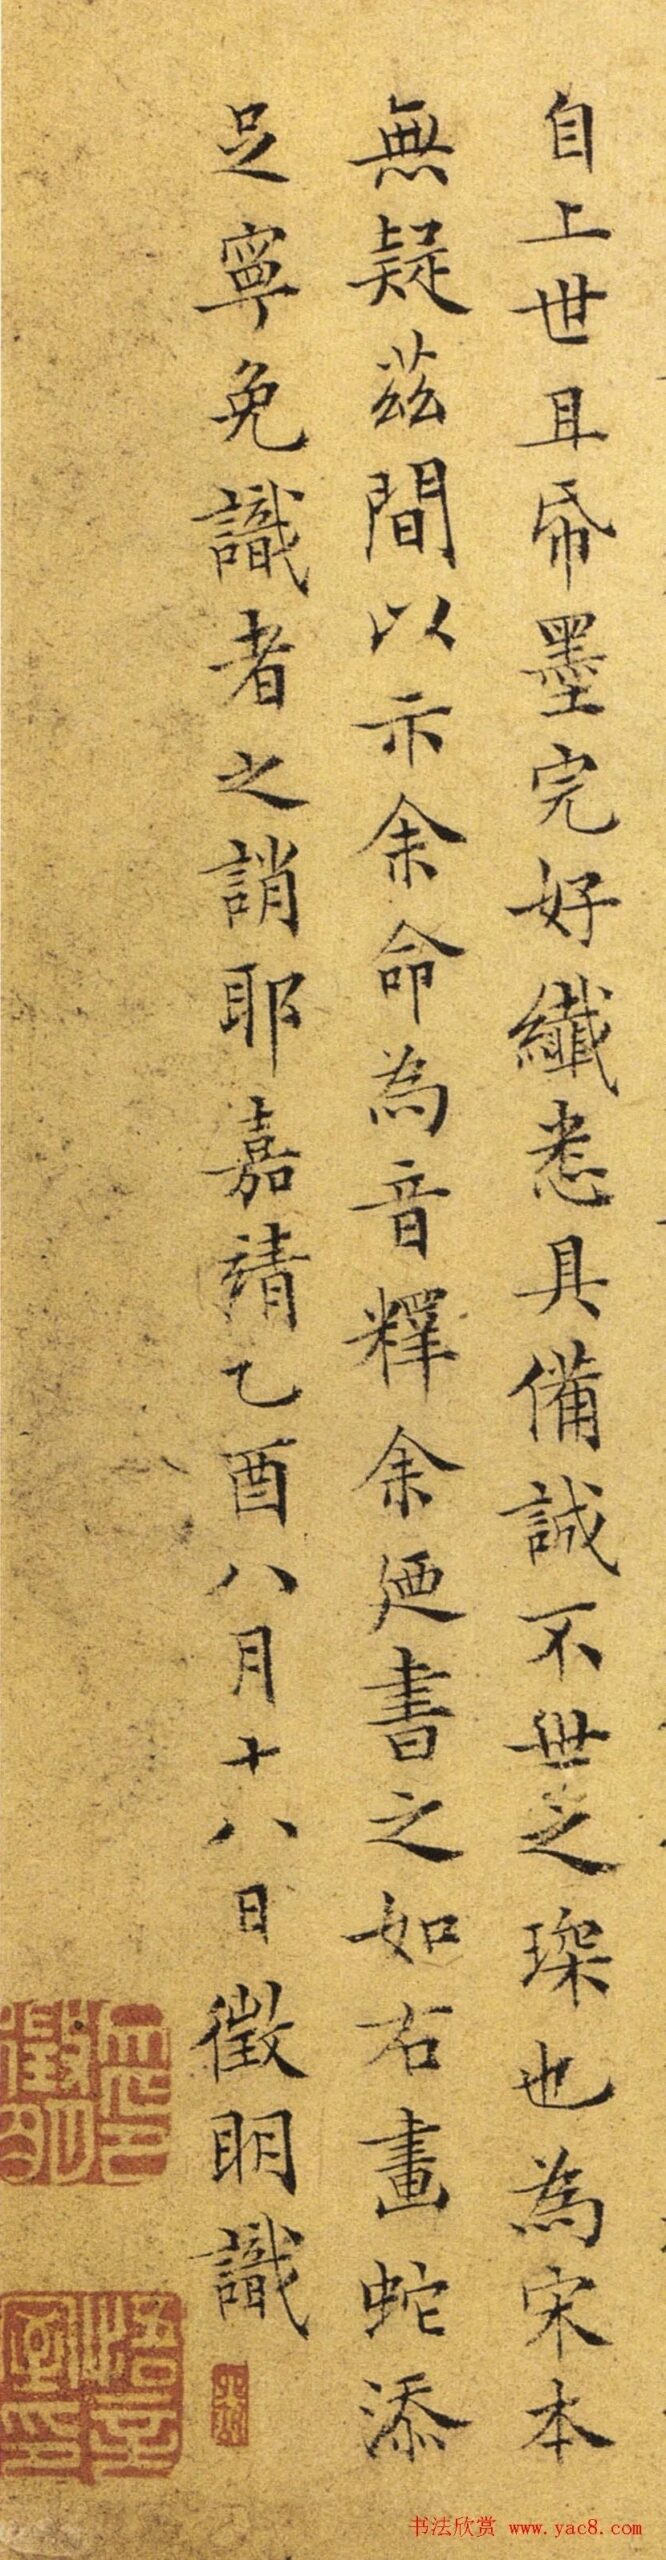 自上世且帋墨完好纖悉具備誠不世之琛也為宋本
無疑茲間以示余命為音釋余廼書之如右畫蛇添
足寧免識者之誚耶嘉靖乙酉八月十八日徵明識
書法欣赏 www.yac8.com